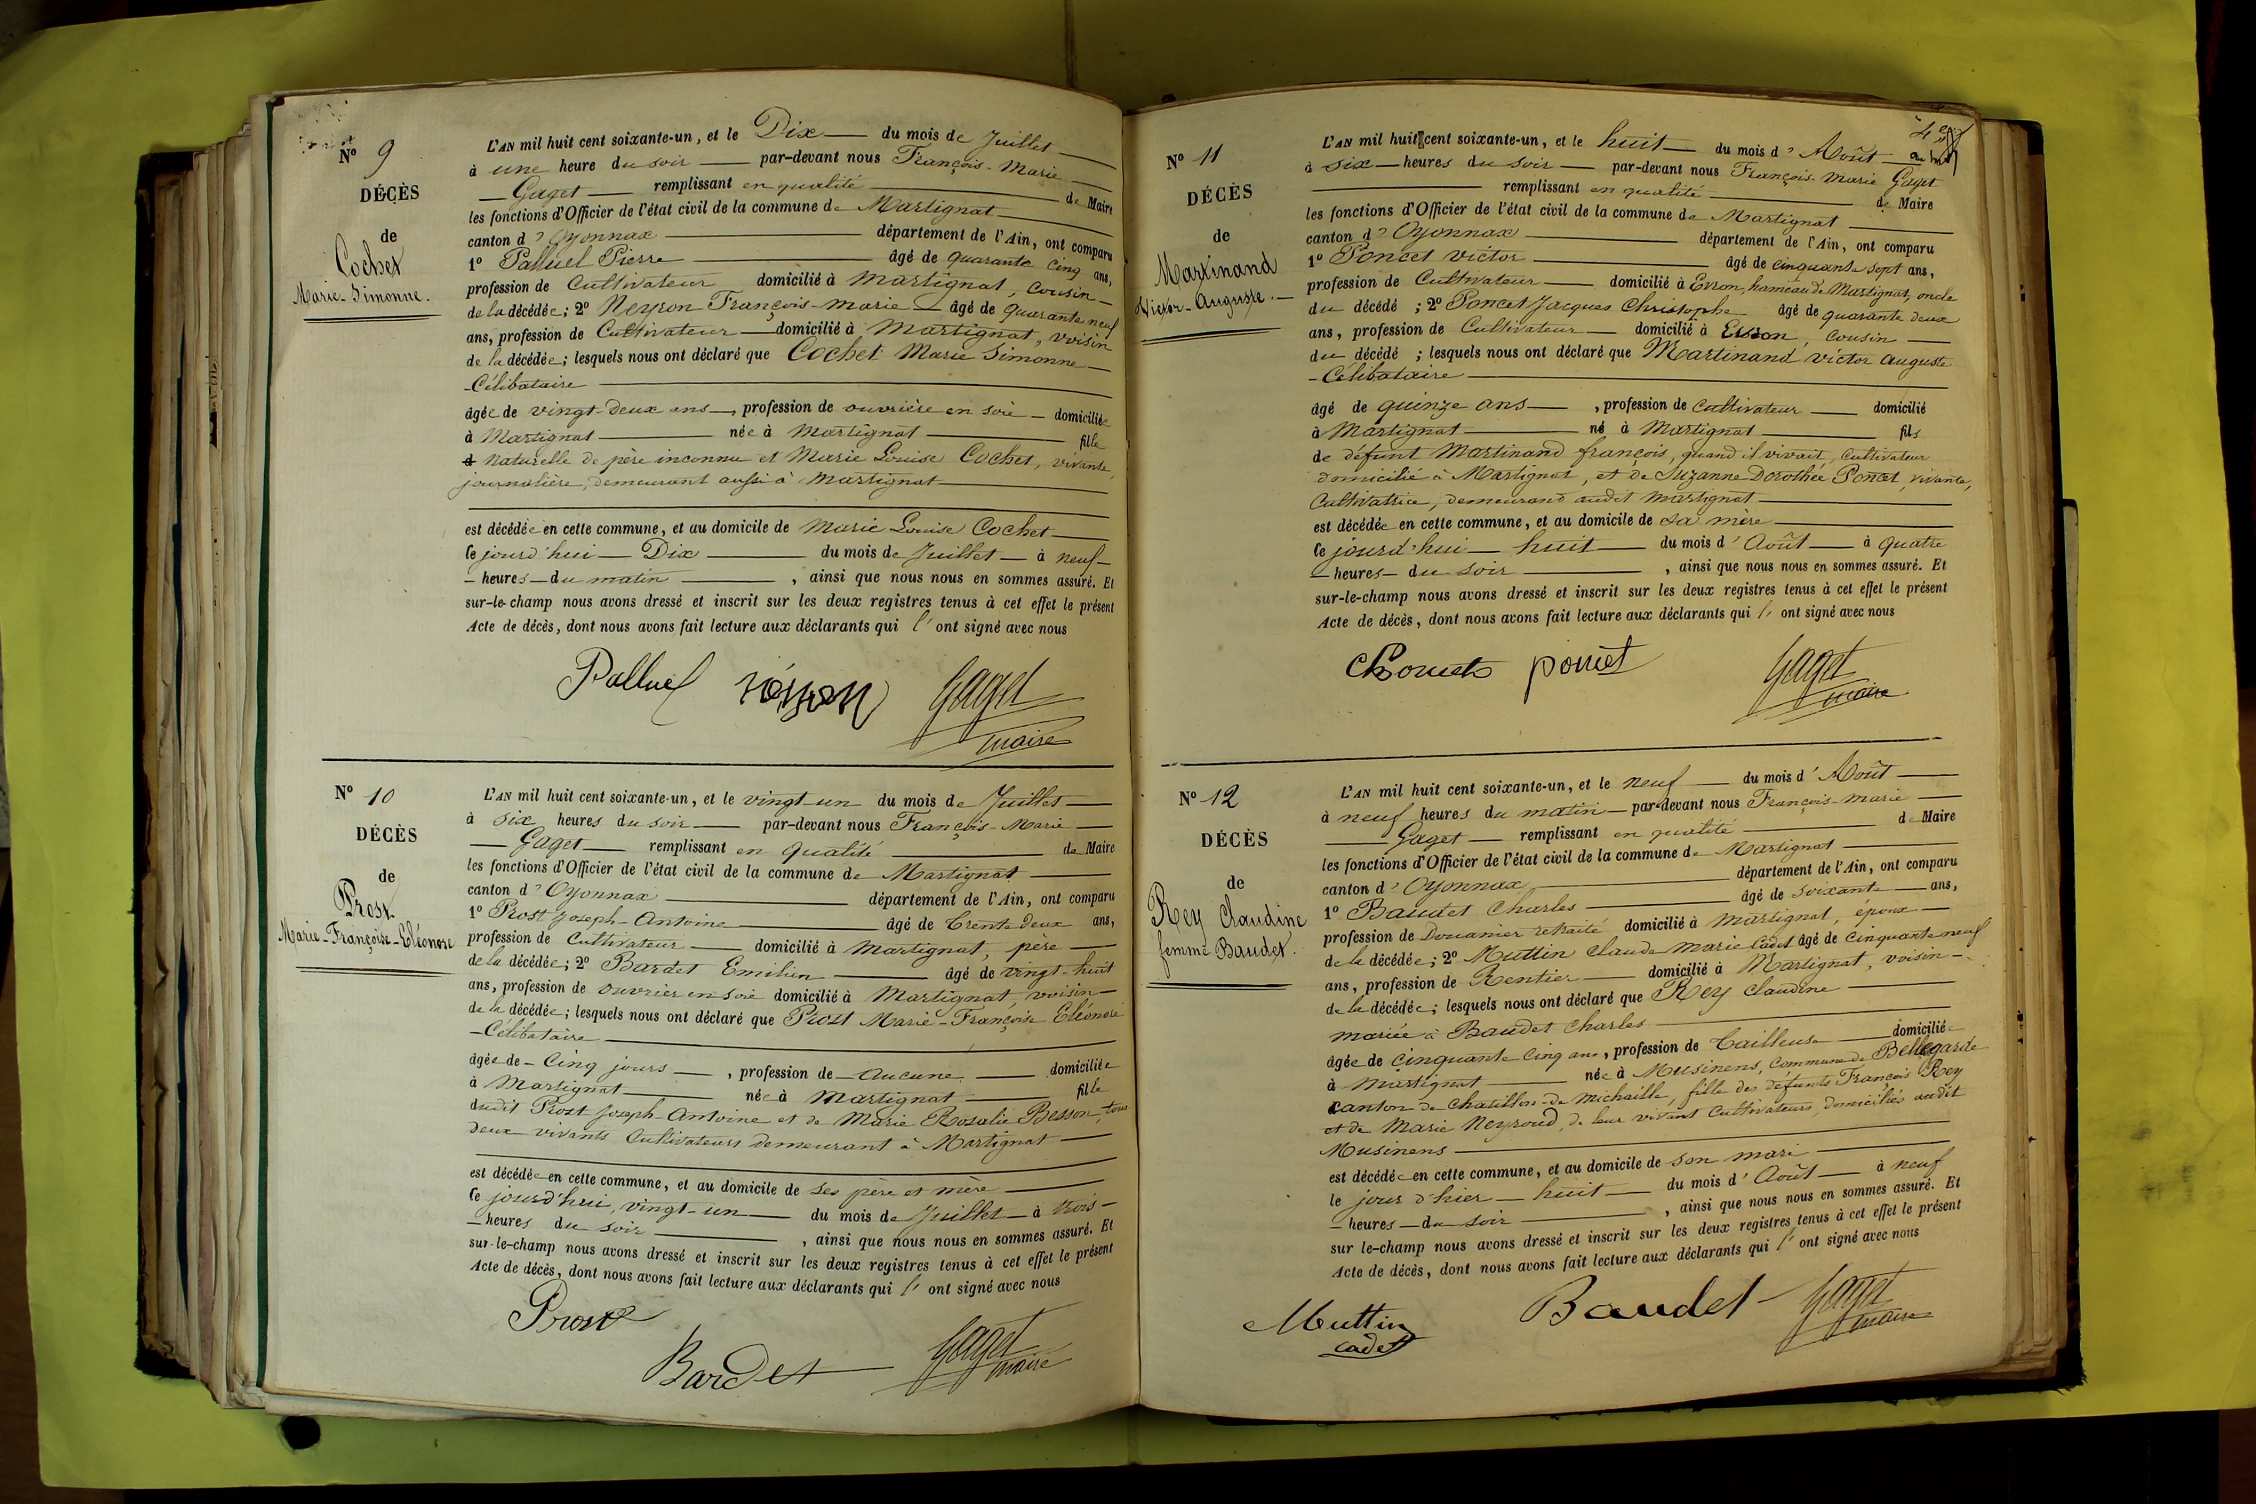 N° 9
DÉCÈS
de
Cochet
Marie-Simonne.
L'AN mil huit cent soixante-un, et le Dix du mois de Juillet
à une heure du soir par-devant nous François-Marie
Gaget remplissant en qualité de Maire
les fonctions d'Officier de l'état civil de la commune de Martignat
canton d'Oyonnax département de l'Ain, ont comparu
1° Palluel Pierre âgé de quarante cinq ans,
profession de Cultivateur domicilié à Martignat, Cousin
de la décédée; 2° Neyron François-Marie âgé de quarante neuf
ans, profession de Cultivateur domicilié à Martignat, voisin
de la décédée; lesquels nous ont déclaré que Cochet Marie Simonne
Célibataire
âgée de vingt-Deux ans, profession de ouvrière en soie domiciliée
à Martignat née à Martignat fille
Naturelle de père inconnu et Marie Louise Cochet, vivante
journalière, demeurant aussi à Martignat
est décédée en cette commune, et au domicile de Marie Louise Cochet
Ce jourd'hui Dix du mois de Juillet à neuf
heures du matin, ainsi que nous nous en sommes assuré. Et
sur-le-champ nous avons dressé et inscrit sur les deux registres tenus à cet effet le présent
Acte de décès, dont nous avons fait lecture aux déclarants qui l' ont signé avec nous
Palluel Néyron Gaget
maire
N° 10
DÉCÈS
de
Prost
Marie-Françoise-Eléonore
L'AN mil huit cent soixante-un, et le vingt-un du mois de Juillet
à six heures du soir par-devant nous François-Marie
Gaget remplissant en qualité de Maire
les fonctions d'Officier de l'état civil de la commune de Martignat
canton d'Oyonnax département de l'Ain, ont comparu
1° Prost Joseph-Antoine âgé de Trente Deux ans,
profession de Cultivateur domicilié à Martignat, père
de la décédée; 2° Bardet Emilien âgé de vingt-huit
ans, profession de ouvrier en soie domicilié à Martignat, voisin
de la décédée; lesquels nous ont déclaré que Prost Marie-Françoise Eléonore
Célibataire
âgée de Cinq jours, profession de Aucune domiciliée
à Martignat née à Martignat fille
dudit Prost Joseph-Antoine et de Marie Rosalie Besson, tous
deux vivants Cultivateurs demeurant à Martignat
est décédée en cette commune, et au domicile de ses père et mère
Ce jourd'hui, vingt-un du mois de Juillet à trois
heures du soir, ainsi que nous nous en sommes assuré. Et
sur-le-champ nous avons dressé et inscrit sur les deux registres tenus à cet effet le présent
Acte de décès, dont nous avons fait lecture aux déclarants qui l' ont signé avec nous
Prost
Bardet Gaget
maire
N° 11
DÉCÈS
de
Martinand
Victor-Auguste.
L'AN mil huit cent soixante-un, et le huit du mois d'Août
à six heures du soir par-devant nous François-Marie Gaget
remplissant en qualité de Maire
les fonctions d'Officier de l'état civil de la commune de Martignat
canton d'Oyonnax département de l'Ain, ont comparu
1° Poncet Victor âgé de cinquante sept ans,
profession de Cultivateur domicilié à Evron, hameau de Martignat, oncle
du décédé; 2° Poncet Jacques Christophe âgé de quarante deux
ans, profession de Cultivateur domicilié à Evron, cousin
du décédé; lesquels nous ont déclaré que Martinand Victor Auguste
Célibataire
âgé de quinze ans, profession de Cultivateur domicilié
à Martignat né à Martignat fils
de défunt Martinand François, quand il vivait, Cultivateur
domicilié à Martignat, et de Suzanne Dorothée Poncet, vivante,
Cultivatrice, demeurant audit Martignat
est décédée en cette commune, et au domicile de sa mère
Ce jourd'hui huit du mois d'Août à quatre
heures du soir, ainsi que nous nous en sommes assuré. Et
sur-le-champ nous avons dressé et inscrit sur les deux registres tenus à cet effet le présent
Acte de décès, dont nous avons fait lecture aux déclarants qui l' ont signé avec nous
poncet Gaget
maire
N° 12
DÉCÈS
de
Rey Claudine
femme Baudet.
L'AN mil huit cent soixante-un, et le neuf du mois d'Août
à neuf heures du matin par-devant nous François-Marie
Gaget remplissant en qualité de Maire
les fonctions d'Officier de l'état civil de la commune de Martignat
canton d'Oyonnax département de l'Ain, ont comparu
1° Baudet Charles âgé de soixante ans,
profession de Douanier retraité domicilié à Martignat, époux
de la décédée; 2° Muttin Claude Marie Cadet âgé de cinquante neuf
ans, profession de Rentier domicilié à Martignat, voisin
de la décédée; lesquels nous ont déclaré que Rey Claudine
mariée à Baudet Charles
âgée de cinquante cinq ans, profession de Tailleuse domiciliée
à Martignat née à Musinens, Commune de Bellegarde
canton de Chatillon-de-Michaille, fille des défunts François Rey
et de Marie Neyroud, de leur vivant Cultivateurs, domiciliés audit
Musinens
est décédée en cette commune, et au domicile de son mari
le jour d'hier huit du mois d'Août à neuf
heures du soir, ainsi que nous nous en sommes assuré. Et
sur le-champ nous avons dressé et inscrit sur les deux registres tenus à cet effet le présent
Acte de décès, dont nous avons fait lecture aux déclarants qui l' ont signé avec nous
Muttin
cadet
Baudet Gaget
maire